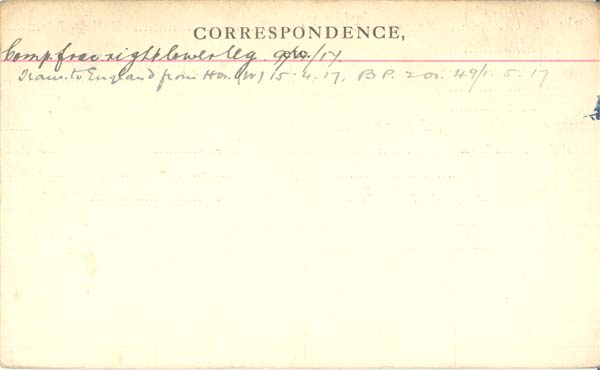 CORRESPONDENCE,
Comp. frac. right lower leg. /17.
Trans. to England from Hos. (W) 15.4.17. B.P. 2 or. 49/1.5.17